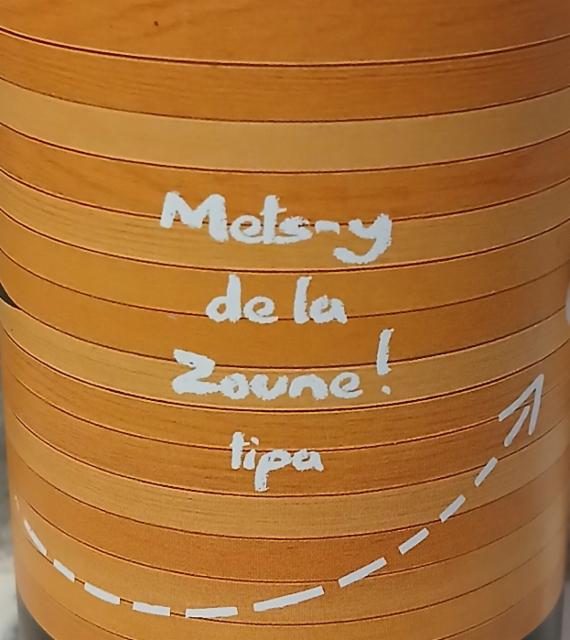 Mets-y
de la
Zoune!
tipa